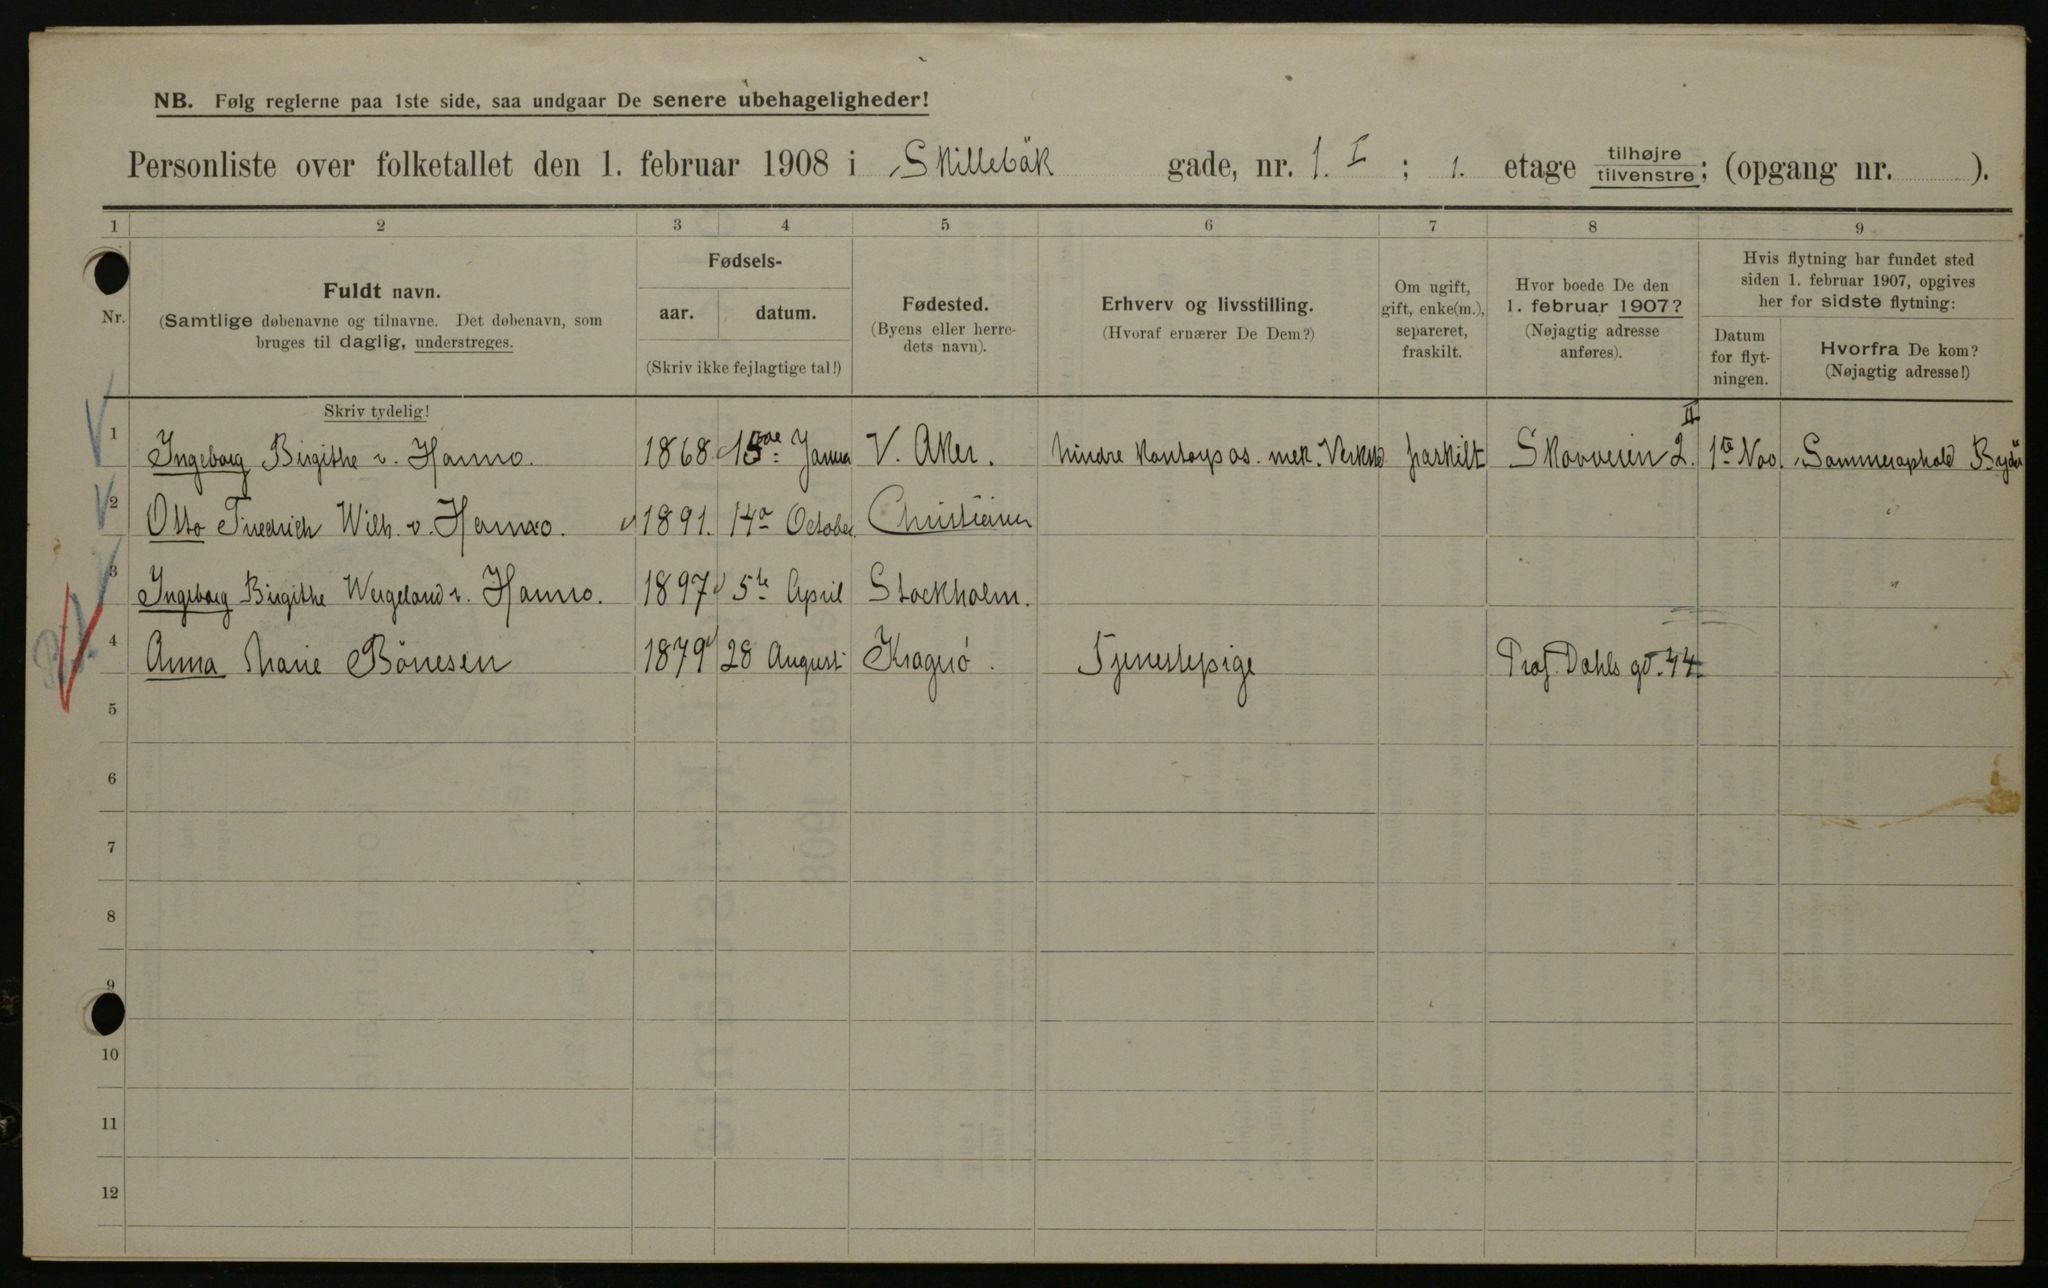 NB. Følg reglerne paa 1ste side, saa undgaar De senere ubehageligheder!
Personliste over folketallet den 1. februar 1908 i Skillebäk gade, nr. 1. I ; 1. etage tilhøjre tilvenstre; (opgang nr. ).
1 2 3 4 5 6 7 8 9
Nr.
Fuldt navn.
(Samtlige døbenavne og tilnavne. Det døbenavn, som
bruges til daglig, understreges.
Skriv tydelig!
Fødsels-
aar. datum.
(Skriv ikke fejlagtige tal!)
Fødested.
(Byens eller herre-
dets navn).
Erhverv og livsstilling.
(Hvoraf ernærer De Dem?)
Om ugift,
gift, enke(m.),
separeret,
fraskilt.
Hvor boede De den
1. februar 1907?
(Nøjagtig adresse
anføres).
Hvis flytning har fundet sted
siden 1. februar 1907, opgives
her for sidste flytning:
Datum
for flyt-
ningen.
Hvorfra De kom?
(Nøjagtig adresse!)
1 Ingeborg Birgithe v. Hanno. 1868 Janua V. Aker. fraskilt Skovveien 2. II 1te Nov. Sommerophold
2 Otto Friedrich Wilh. v. Hanno. 1891. 14de October Christiania "
3 Ingeborg Birgithe Wergeland v. Hanno. 1897 5te April Stockholm. "
4 Anna Marie Bönesen 1879 28 August Kragerö. Tjenestepige Prof. Dahls gd. 44
5
6
7
8
9
10
11
12